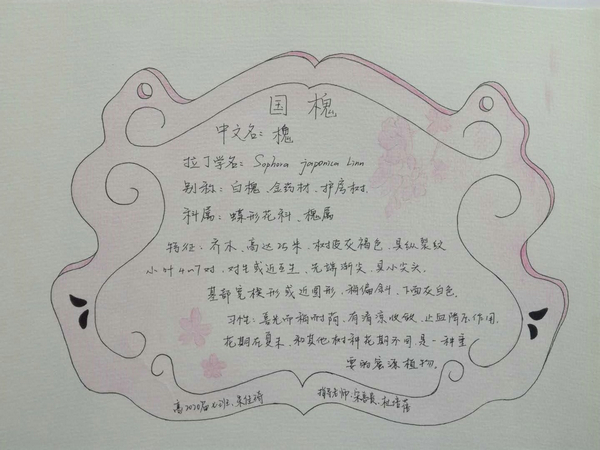 国槐
中文名：槐
拉丁学名：Sophora japonica Linn
别称：白槐、金药材、护房树.
科属：蝶形花科、槐属
特征：乔木，高达25米，树皮灰褐色，具纵裂纹
小叶4~7对，对生或近互生，先端渐尖，具小尖头，
基部宽楔形或近圆形，稍偏斜，下面灰白色。
习性：喜光而稍耐荫，有清凉收敛、止血降压作用.
花期在夏末，和其他树种花期不同，是一种重
要的蜜源植物。
高2020届 班、朱佳琦
指导老师：宋 杜